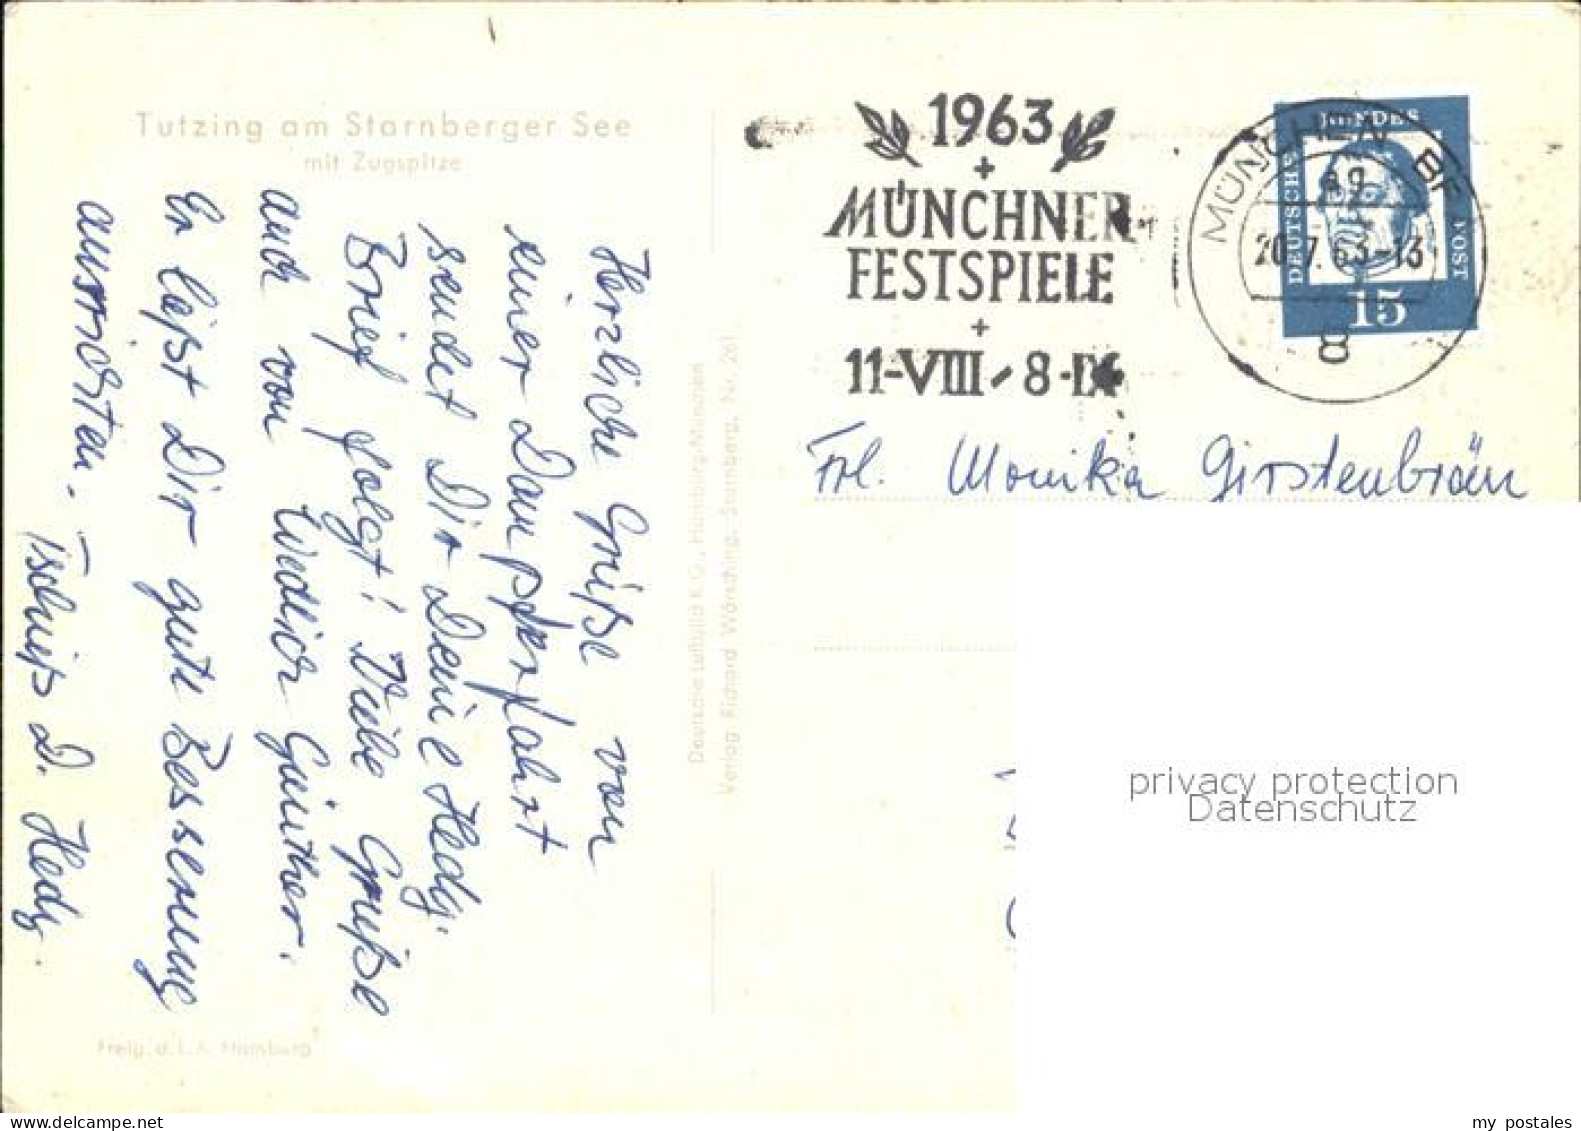 Tutzing am Starnberger See
mit Zugspitze
Herzliche Grüße von
einer Dampferfahrt
sendet Dir Deine Hedy.
Brief folgt! Viele Grüße
auch von Wedlich Günther.
Er läßt Dir gute Besserung
ausrichten. Tschüß D. Hedy.
Freig. d. L. A. Hamburg
Deutsche Luftbild K.G., Hamburg/München
Verlag: Richard Wörsching, Starnberg, Nr. 261
1963
+
MÜNCHNER
FESTSPIELE
+
11-VIII - 8-IX
MÜNCHEN BP
20.7.63-13
8
DEUTSCHE BUNDESPOST
15
Frl. Monika Girstenbräu
privacy protection
Datenschutz
my postales
www.delcampe.net